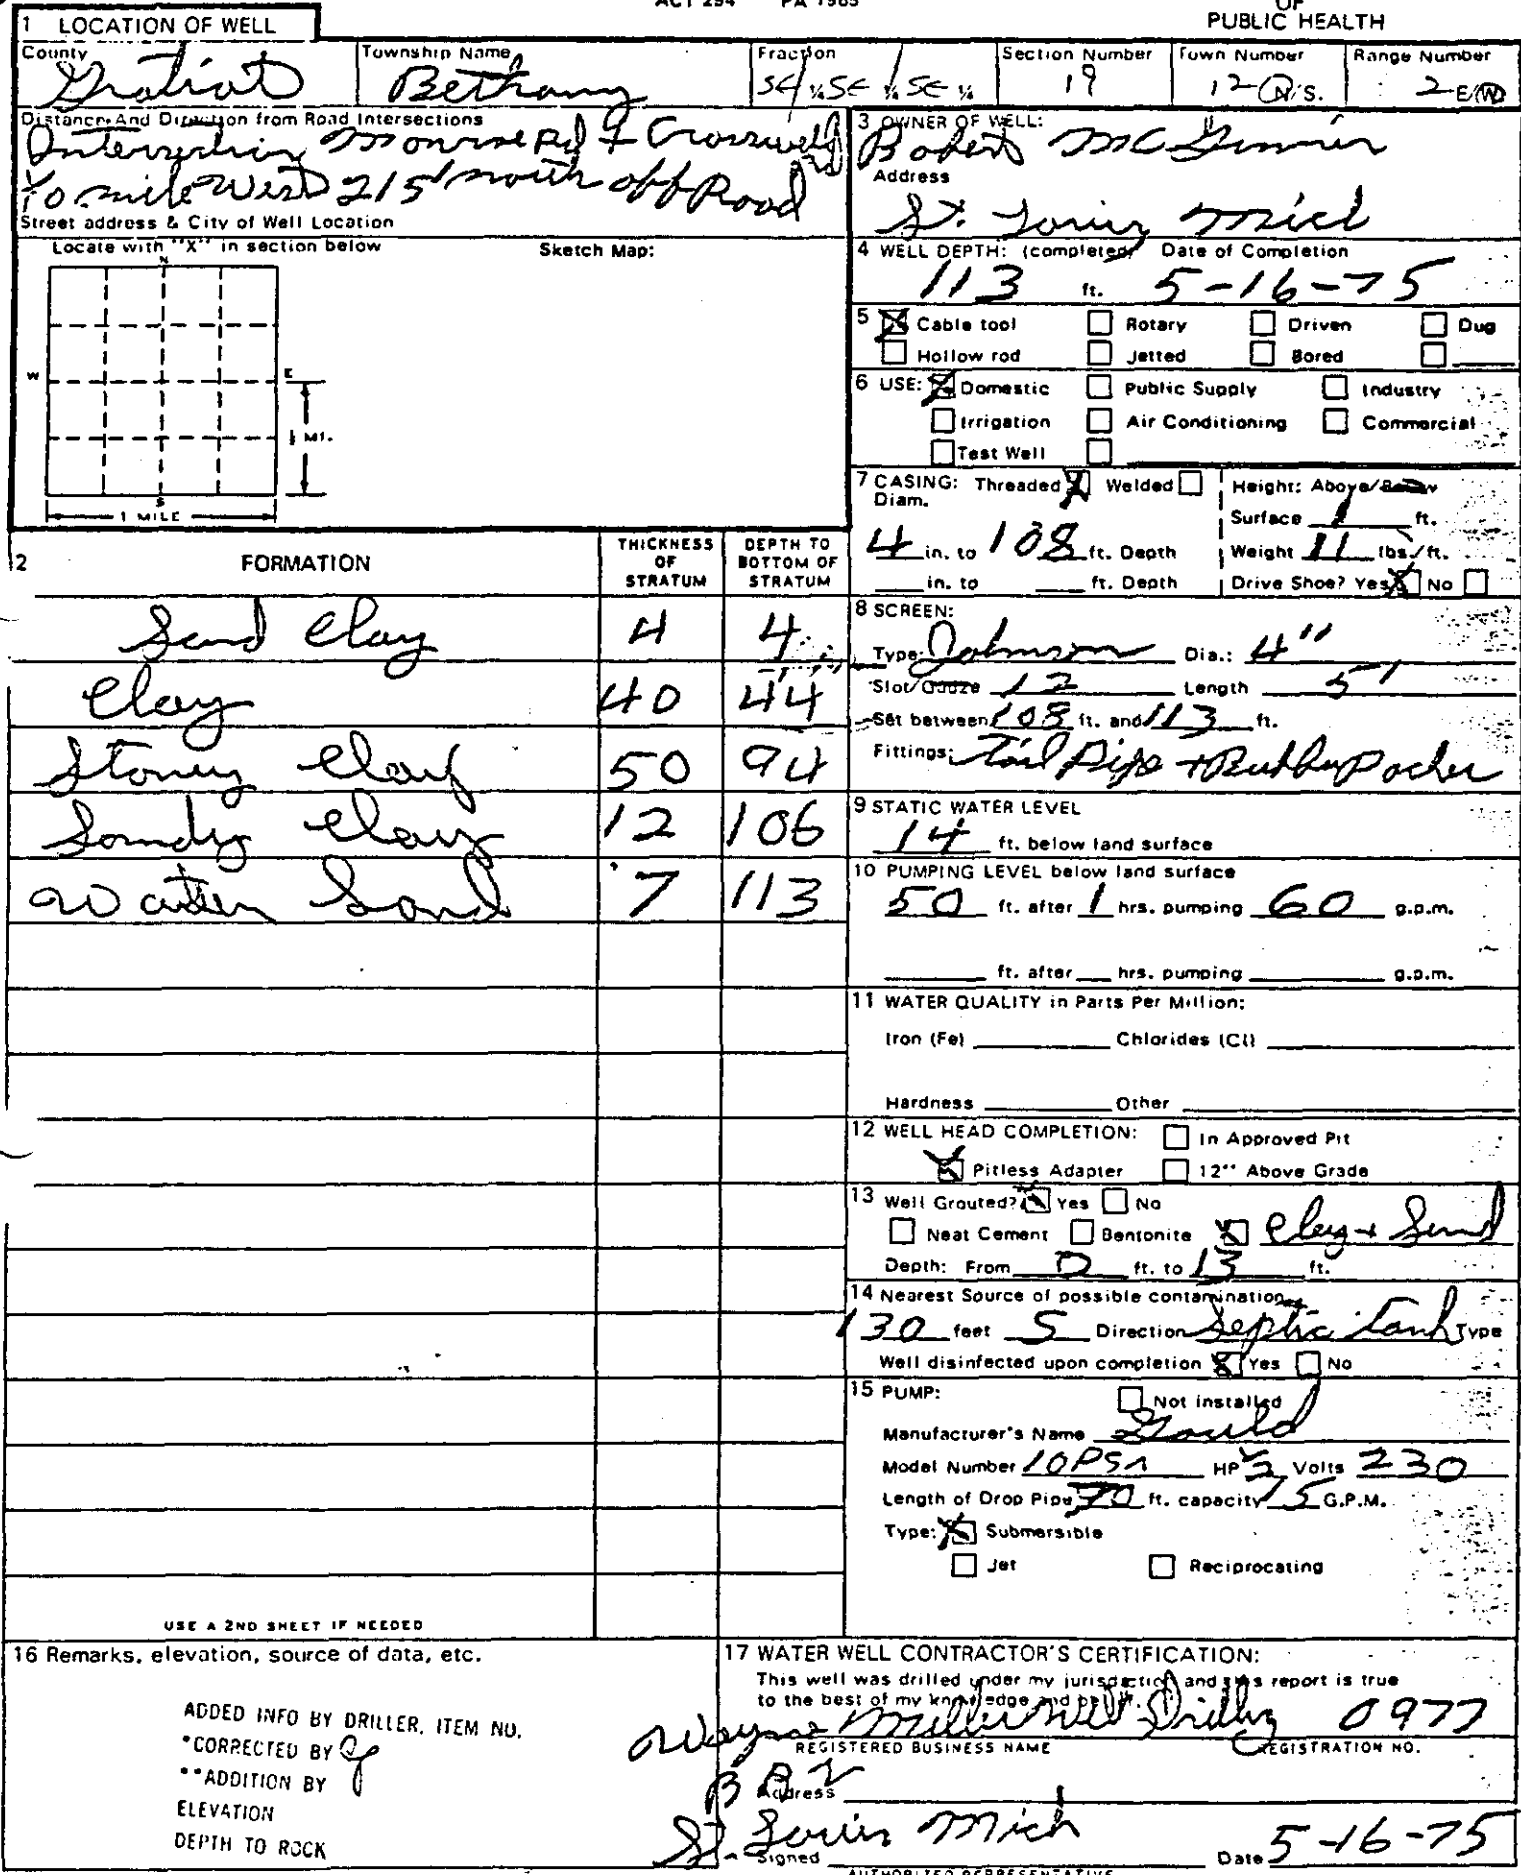 ACT 294 PA 1965
OF
PUBLIC HEALTH
1 LOCATION OF WELL
County Gratiot
Township Name Bethany
Fraction SE ¼ SE ¼ SE ¼
Section Number 19
Town Number 12 N/S.
Range Number 2 E/W
Distance And Direction from Road Intersections
Intersection Monroe Rd & Crosswell Rd
mile West 215' north off Road
Street address & City of Well Location
Locate with "X" in section below
Sketch Map:
N
W
E
½ MI.
S
1 MILE
3 OWNER OF WELL:
Robert McGinnis
Address
St. Louis Mich
4 WELL DEPTH: (completed) Date of Completion
113 ft. 5-16-75
5 Cable tool Rotary Driven Dug
Hollow rod Jetted Bored
6 USE: Domestic Public Supply Industry
Irrigation Air Conditioning Commercial
Test Well
7 CASING: Threaded Welded
Diam.
4 in. to 108 ft. Depth
in. to ft. Depth
Height: Above/Below
Surface 1 ft.
Weight 11 lbs./ft.
Drive Shoe? Yes No
2 FORMATION
THICKNESS OF STRATUM
DEPTH TO BOTTOM OF STRATUM
Sand Clay 4 4
Clay 40 44
Stoney Clay 50 94
Sandy Clay 12 106
Water Sand 7 113
USE A 2ND SHEET IF NEEDED
8 SCREEN:
Type: Johnson Dia.: 4"
Slot/Gauze 12 Length 5'
Set between 108 ft. and 113 ft.
Fittings: Tail Pipe + Rubber Packer
9 STATIC WATER LEVEL
14 ft. below land surface
10 PUMPING LEVEL below land surface
50 ft. after 1 hrs. pumping 60 g.p.m.
ft. after hrs. pumping g.p.m.
11 WATER QUALITY in Parts Per Million:
Iron (Fe) Chlorides (Cl)
Hardness Other
12 WELL HEAD COMPLETION: In Approved Pit
Pitless Adapter 12" Above Grade
13 Well Grouted? Yes No
Neat Cement Bentonite Clay + Sand
Depth: From 0 ft. to 13 ft.
14 Nearest Source of possible contamination
130 feet S Direction Septic tank Type
Well disinfected upon completion Yes No
15 PUMP: Not installed
Manufacturer's Name Gould
Model Number HP ½ Volts 230
Length of Drop Pipe 70 ft. capacity 15 G.P.M.
Type: Submersible
Jet Reciprocating
16 Remarks, elevation, source of data, etc.
ADDED INFO BY DRILLER, ITEM NO.
*CORRECTED BY
**ADDITION BY
ELEVATION
DEPTH TO ROCK
17 WATER WELL CONTRACTOR'S CERTIFICATION:
This well was drilled under my jurisdiction and this report is true
to the best of my knowledge and belief.
Wayne Miller Well Drilling 0977
REGISTERED BUSINESS NAME REGISTRATION NO.
Address
St. Louis Mich
Signed Date 5-16-75
AUTHORIZED REPRESENTATIVE